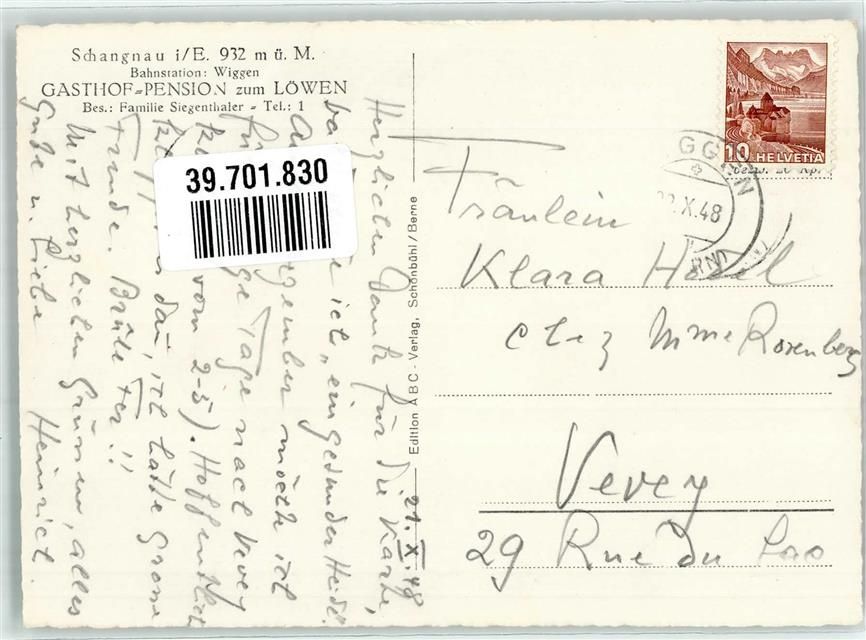 Schangnau i/E. 932 m ü. M.
Bahnstation: Wiggen
GASTHOF-PENSION zum LÖWEN
Bes.: Familie Siegenthaler - Tel.: 1
39.701.830
21. X 48
Herzlichen Dank für die Karte,
ich „eingesunder Heidi".
möcht ich
Tage nach Vevey
vom 2-5). Hoffentlich
da, ich hätte grosse
Freude.
Mit herzlichen Grüssen, alles
Gute u. Liebe
Heinrich.
Edition ABC - Verlag, Schönbühl/Berne
10 HELVETIA
GGEN
.X.48
Fräulein
Klara
chez Mme Rosenberg
Vevey
29 Rue du Lac